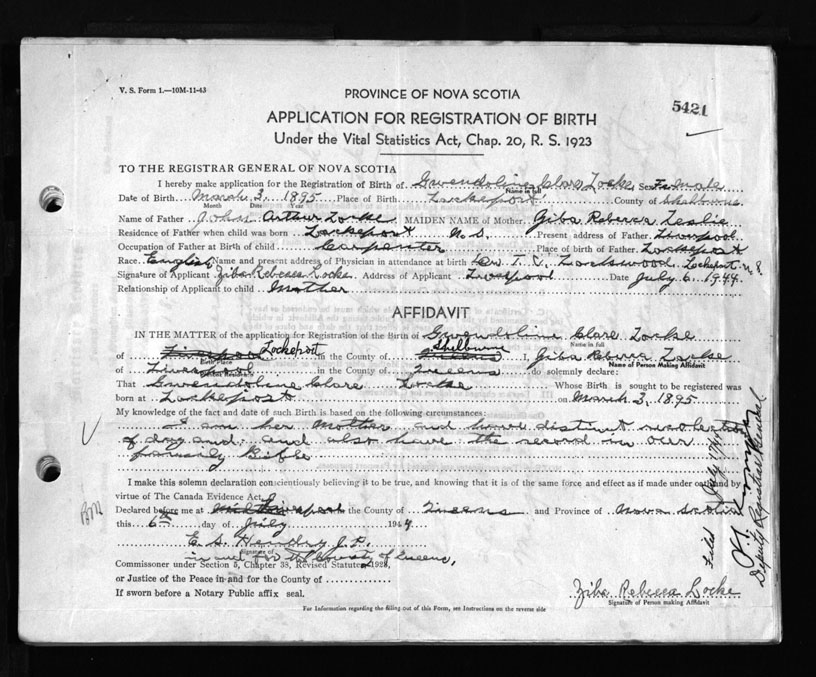 V. S. Form 1.—10M-11-43
PROVINCE OF NOVA SCOTIA
5421
APPLICATION FOR REGISTRATION OF BIRTH
Under the Vital Statistics Act, Chap. 20, R. S. 1923
TO THE REGISTRAR GENERAL OF NOVA SCOTIA
I hereby make application for the Registration of Birth of Gwendoline Clare Locke Sex Female
Name in full
Date of Birth March 3, 1895 Place of Birth Lockeport County of Shelburne
Month Date Year
Name of Father John Arthur Locke MAIDEN NAME of Mother Ziba Rebecca Leslie
Residence of Father when child was born Lockeport N.S. Present address of Father Liverpool
Occupation of Father at Birth of child Carpenter Place of birth of Father Lockeport
Race English Name and present address of Physician in attendance at birth Dr T. C. Lockwood, Lockeport N.S.
Signature of Applicant Ziba Rebecca Locke Address of Applicant Liverpool Date July 6 1944
Relationship of Applicant to child Mother
AFFIDAVIT
IN THE MATTER of the application for Registration of the Birth of Gwendoline Clare Locke
Name in full
of Liverpool Lockeport in the County of Queens Shelburne I, Ziba Rebecca Locke
Birth Place Name of Person Making Affidavit
of Liverpool in the County of Queens do solemnly declare:
That Gwendoline Clare Locke Whose Birth is sought to be registered was
born at Lockeport on March 3, 1895
My knowledge of the fact and date of such Birth is based on the following circumstances:
I am her Mother and have distinct recollection
of day and and also have the record in our
family Bible
I make this solemn declaration conscientiously believing it to be true, and knowing that it is of the same force and effect as if made under oath and by
virtue of The Canada Evidence Act.
Declared before me at Liverpool the County of Queens and Province of Nova Scotia
this 6th day of July 1944
E. S. Hendry J.P.
Signature of
in and for the County of Queens,
Commissioner under Section 5, Chapter 38, Revised Statutes 1923,
or Justice of the Peace in and for the County of
If sworn before a Notary Public affix seal.
Ziba Rebecca Locke
Signature of Person making Affidavit
For Information regarding the filling out of this Form, see Instructions on the reverse side
Filed July 17/44
Deputy Registrar General